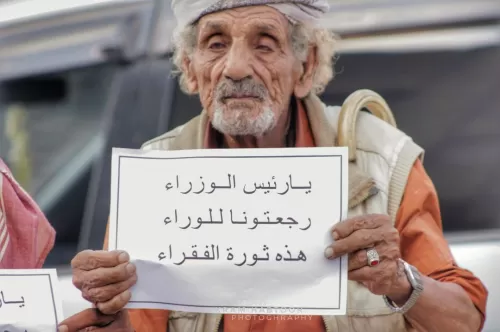 يارئيس الوزراء
رجعتونا للوراء
هذه ثورة الفقراء
يار
PHOTOGRAPHY